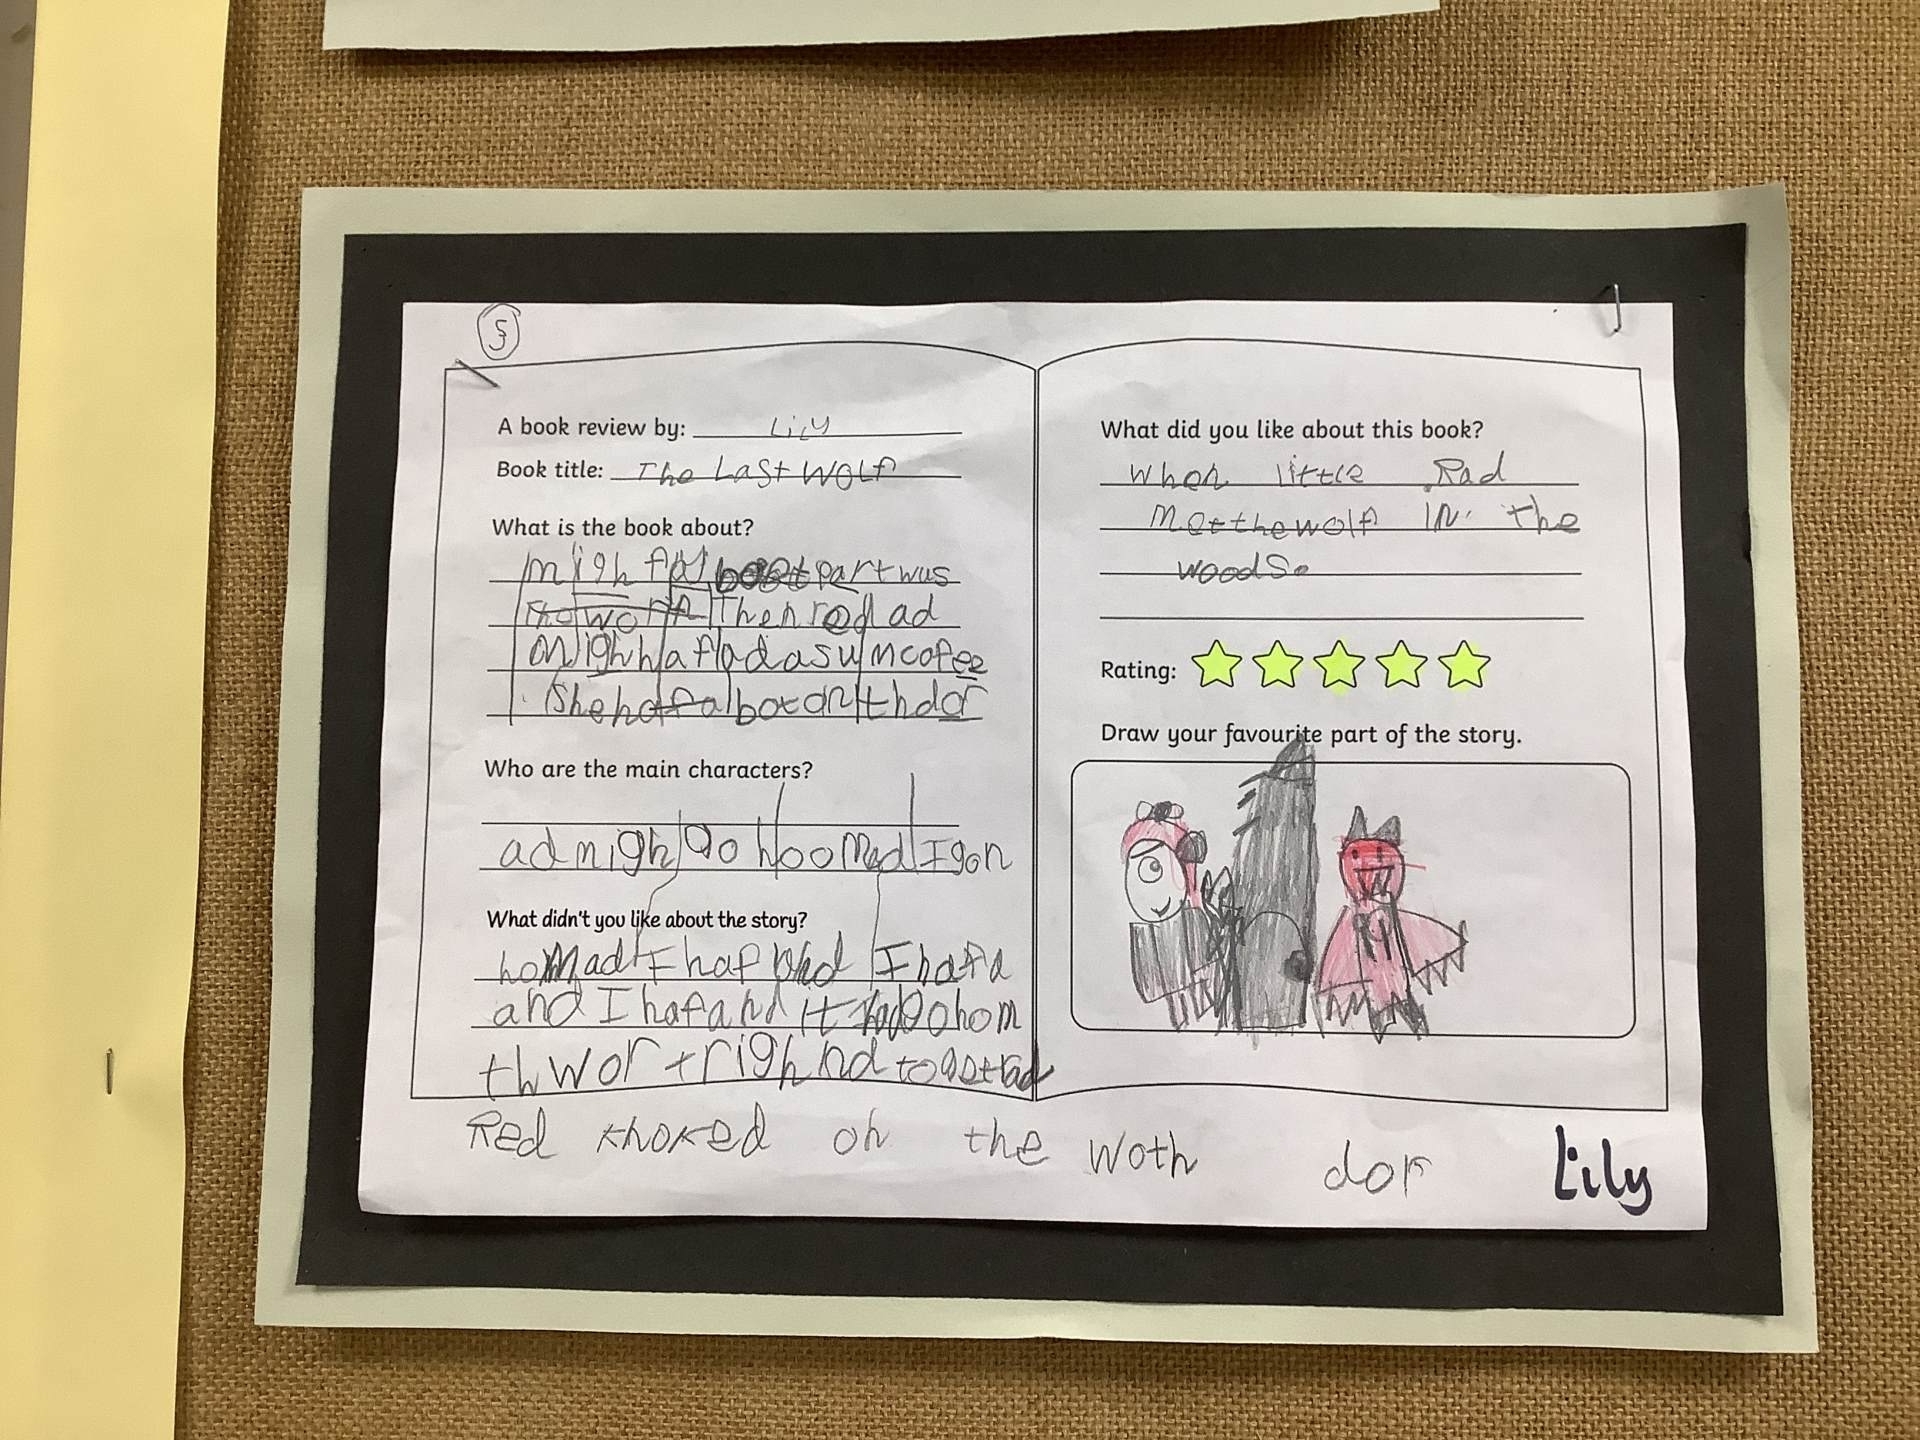 5
A book review by: Lily
Book title: The Last Wolf
What is the book about?
migh fav part was
Then red ad
migh haf ad a sum cofee
She haf a bot on th dor
Who are the main characters?
ad migh go hoo mad I gon
What didn't you like about the story?
mad I haf I haf a
and I haf and it hom
th wor t righ nd to
Red knoked on the woth dor
What did you like about this book?
when little Rad
met the wolf IN the
woods.
Rating:
Draw your favourite part of the story.
Lily